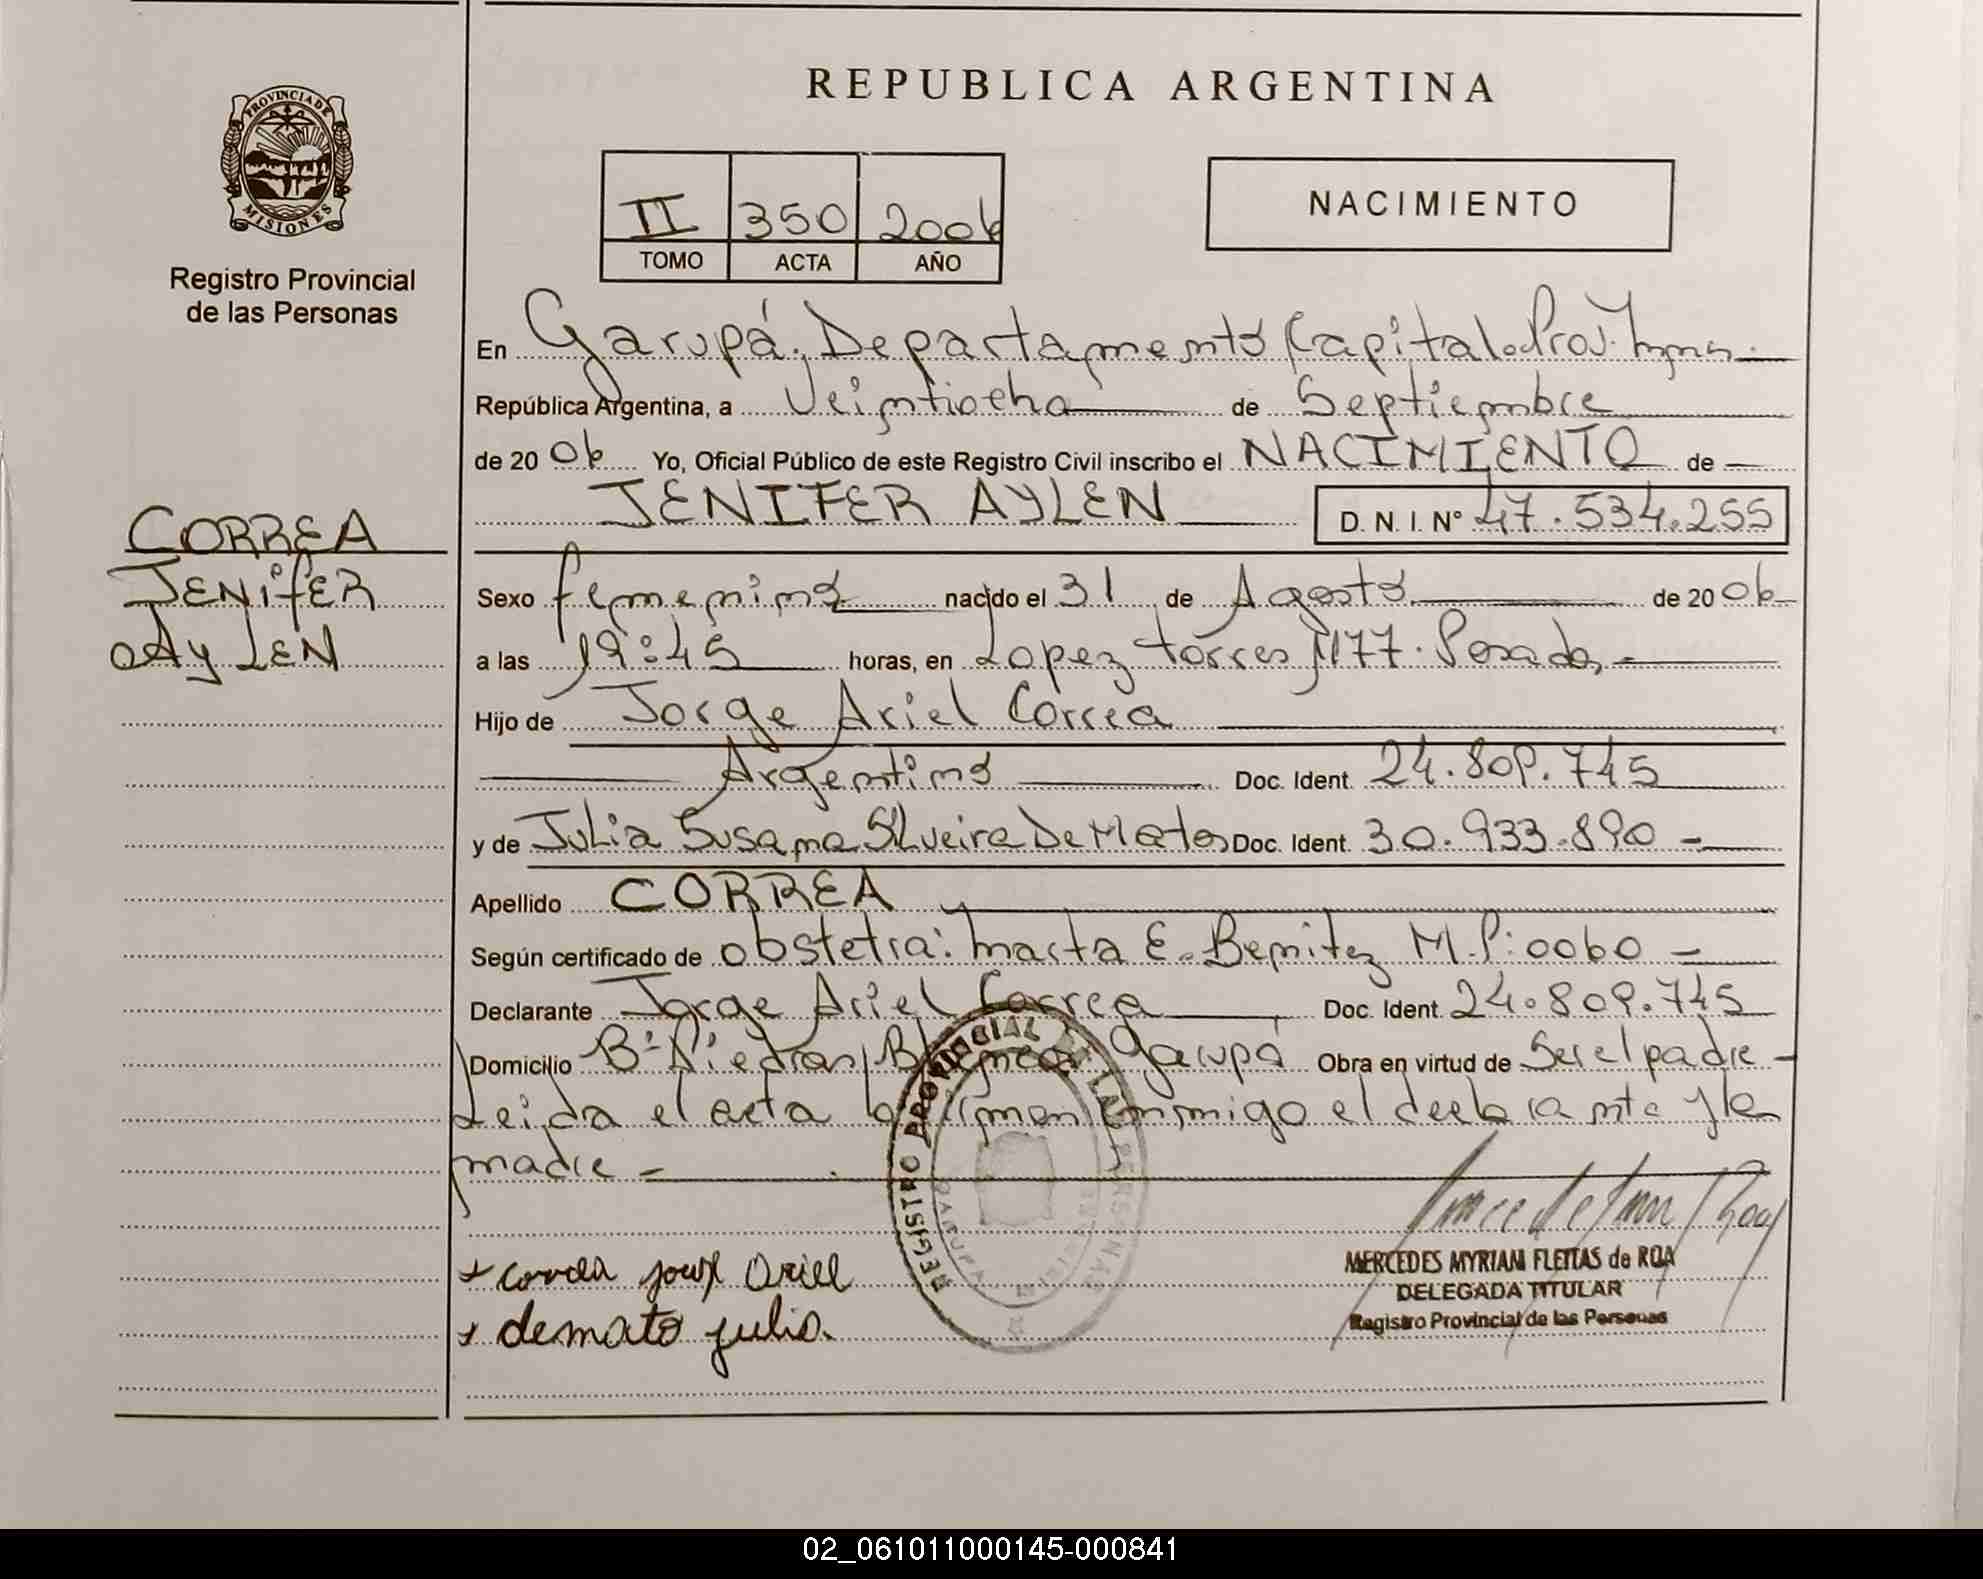 REPUBLICA ARGENTINA
PROVINCIA DE
MISIONES
Registro Provincial
de las Personas
II 350 2006
TOMO ACTA AÑO
NACIMIENTO
En Garupá. Departamento Capital. Prov. Mnes.
República Argentina, a Veintiocho de Septiembre
de 2006 Yo, Oficial Público de este Registro Civil inscribo el NACIMIENTO de
JENIFER AYLEN D. N. I. N° 47.534.255
CORREA
JENifER
AyLEN
Sexo femenino nacido el 31 de Agosto de 2006
a las 19:45 horas, en Lopez torres 1177. Posadas
Hijo de Jorge Ariel Correa
Argentino Doc. Ident. 24.809.745
y de Julia Susana Silveira De Matos Doc. Ident. 30.933.890
Apellido CORREA
Según certificado de obstetra: Marta E. Benitez M.P: 0060
Declarante Jorge Ariel Correa Doc. Ident. 24.809.745
Domicilio B° Piedras Blancas Garupá Obra en virtud de Ser el padre
Leida el acta la firman conmigo el declarante y la
madre
REGISTRO PROVINCIAL DE LAS PERSONAS
GARUPA
MERCEDES MYRIAN FLEITAS de ROA
DELEGADA TITULAR
Registro Provincial de las Personas
correa Ariel
demato julia.
02_061011000145-000841